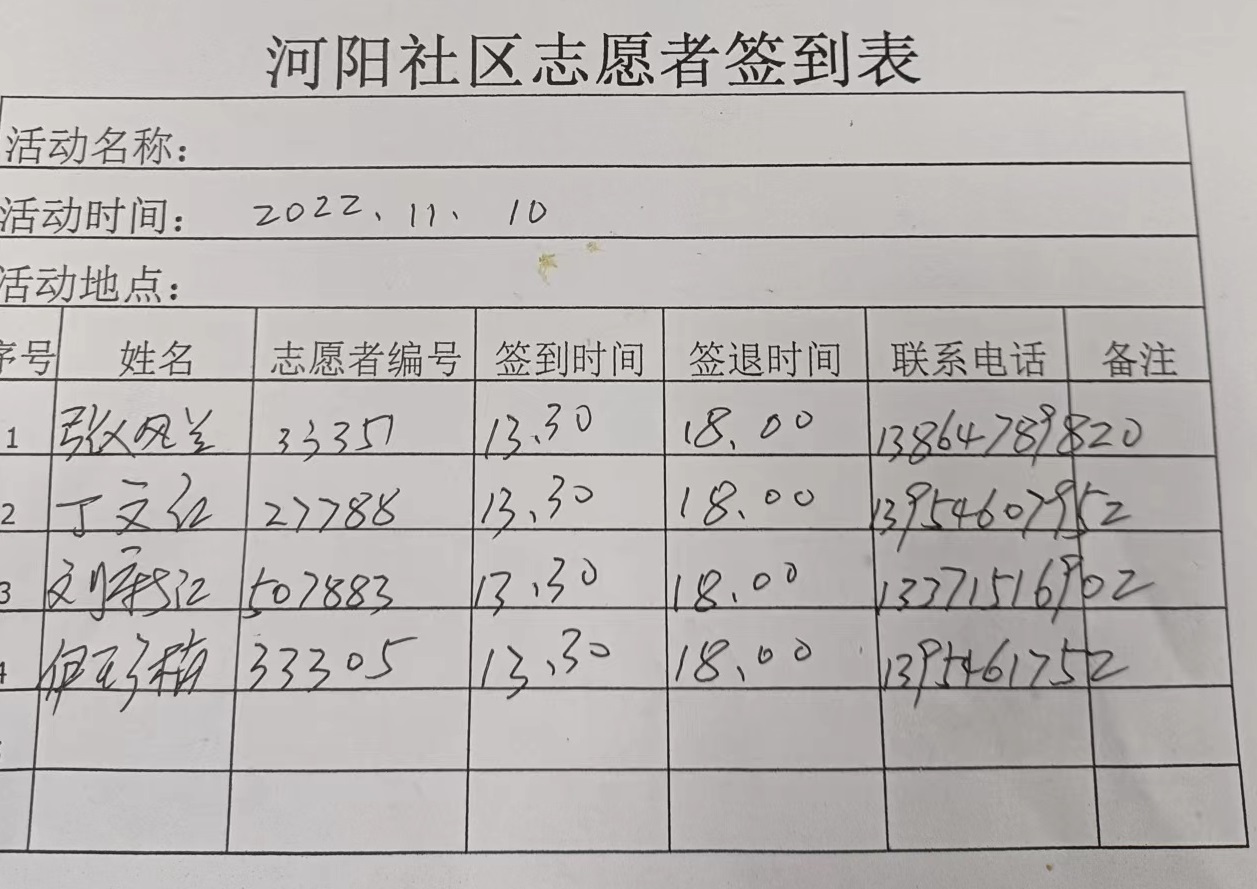 河阳社区志愿者签到表
活动名称：
活动时间： 2022、11、 10
活动地点：
序号 姓名 志愿者编号 签到时间 签退时间 联系电话 备注
1 张凤兰 33351 13、30 18、00 13864789820
2 丁文红 27788 13、30 18、00 13954607952
3 刘 507883 13、30 18、00 13371516902
4 33305 13、30 18、00 1395461752